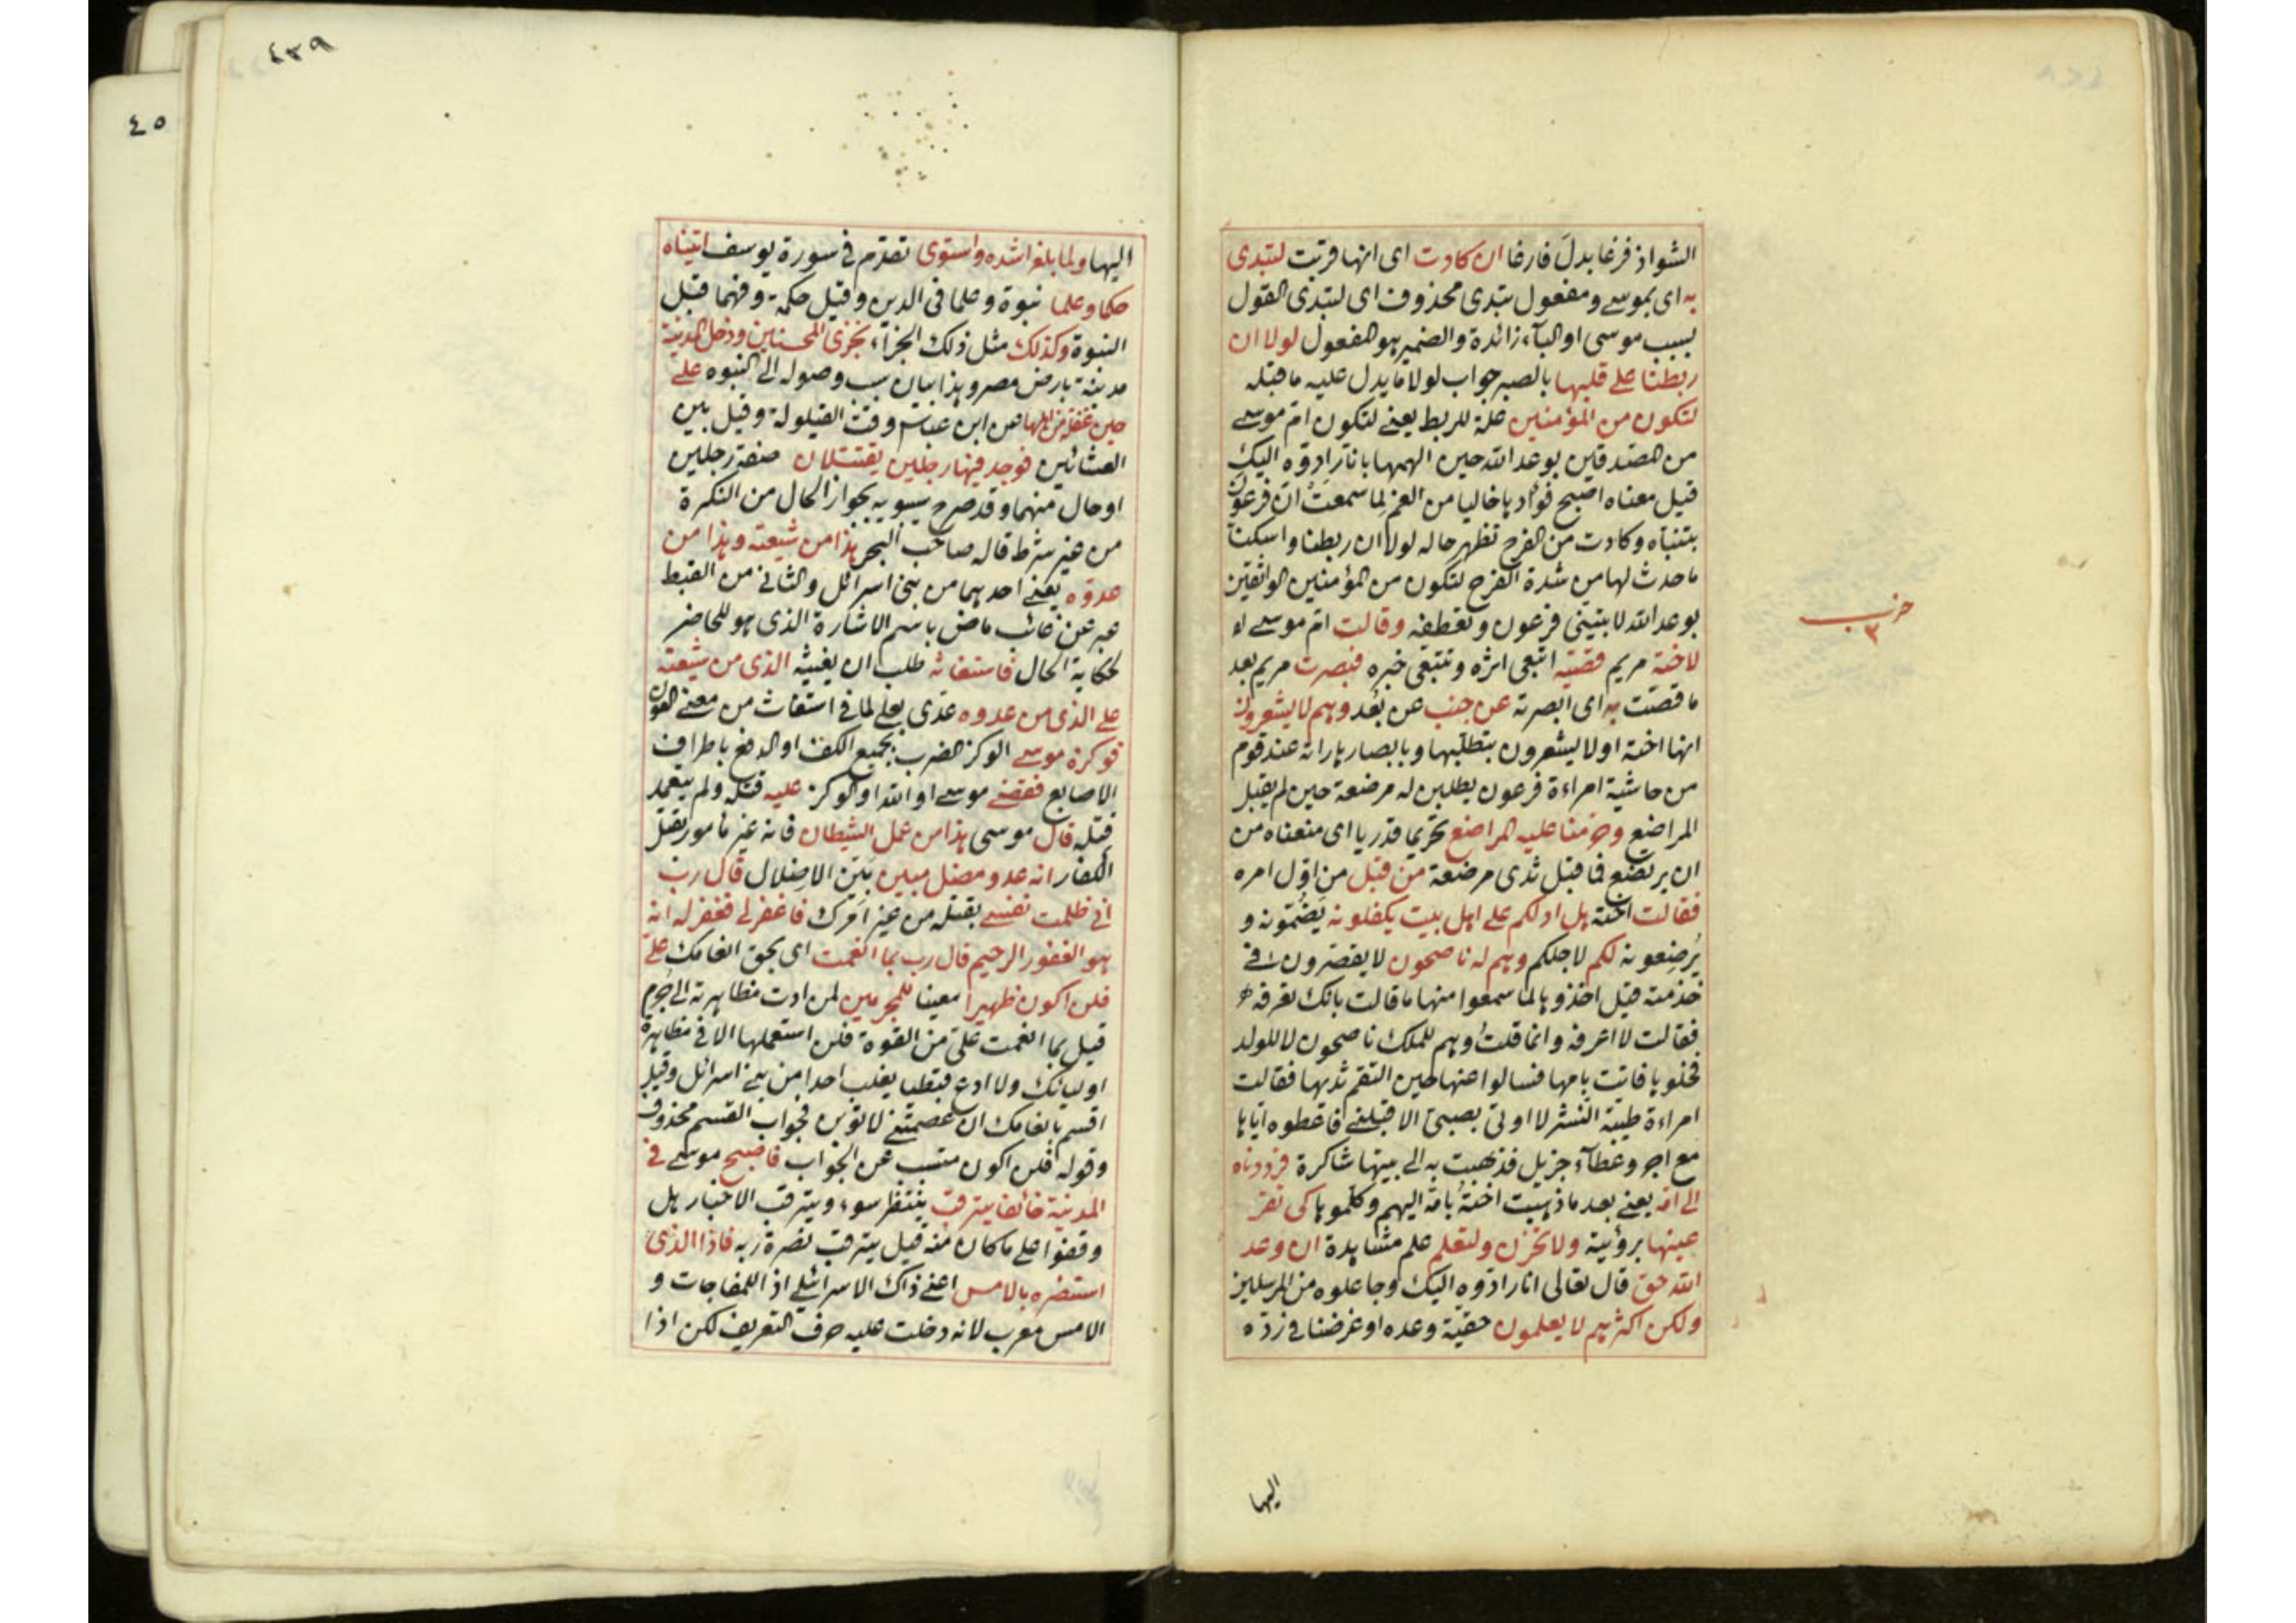 الشواذ فرغا بدل فارغا ان كادت اى انها قربت لتبدى
به اى بموسے ومفعول تبدى محذوف اى لتبدى القول
بسبب موسى او البآء زائدة والضمير هو المفعول لولا ان
ربطنا على قلبها بالصبر جواب لولا ما يدل عليه ما قبله
لتكون من المؤمنين علة للربط يعنے لتكون ام موسے
من المصدقين بوعد الله حين الهمها بانا رادوه اليك
قيل معناه اصبح فؤادها خاليا من الغم لما سمعت ان فرعون
يتبناه وكادت من الفرح تظهر حاله لولا ان ربطنا واسكنا
ما حدث لها من شدة الفرح لتكون من المؤمنين الواثقين
بوعد الله لا بتبنى فرعون وتعطفه وقالت ام موسے
لاخته مريم قصيه اتبعى اثره وتتبعى خبره فبصرت مريم بعد
ما قصت به اى ابصرته عن جنب عن بعد وهم لا يشعرون
انها اخته او لا يشعرون بتطلبها وبابصارها رأته عند قوم
من حاشية امراءة فرعون يطلبن له مرضعة حين لم يقبل
المراضيع وحرمنا عليه المراضع تحريما قدريا اى منعناه من
ان يرتضع فما قبل ثدى مرضعة من قبل من اول امره
فقالت اخته هل ادلكم على اهل بيت يكفلونه يضمونه و
يرضعونه لكم لاجلكم وهم له ناصحون لا يقصرون فے
خدمته قيل اخذوها لما سمعوا منها ما قالت بانك تعرفه
فقالت لا اعرفه وانما قلت وهم للملك ناصحون لا للولد
فخلوها فاتت بامها فسالوا عنها حين التقم ثديها فقالت
امراءة طيبة النشر لا اوتى بصبى الا قبلنے فاعطوه اياها
مع اجر وعطآء جزيل فذهبت به الى بيتها شاكرة فرددناه
الى امه يعنے بعد ما ذهبت اخته بامه اليهم وكلموها كى تقر
عينها برؤيته ولا تحزن ولتعلم علم مشاهدة ان وعد
الله حق قال تعالى انا رادوه اليك وجاعلوه من المرسلين
ولكن اكثرهم لا يعلمون حقية وعده او غرضنا فے رده
حزب
٣
اليها
٤٣٩
٤٥
اليها ولما بلغ اشده واستوى تقدم فى سورة يوسف اتيناه
حكما وعلما نبوة وعلما فى الدين وقيل حكمة وفهما قبل
النبوة وكذلك مثل ذلك الجزآء نجزى المحسنين ودخل المدينة
مدينة بارض مصر وهذا بيان سبب وصوله الى النبوه على
حين غفلة من اهلها عن ابن عباس وقت القيلولة وقيل بين
العشائين فوجد فيها رجلين يقتتلان صفة رجلين
او حال منهما وقد صرح سيبويه بجواز الحال من النكرة
من غير شرط قاله صاحب البحر هذا من شيعته وهذا من
عدوه يعنے احدهما من بنى اسرائل والثانى من القبط
عبر عن غائب ماض باسم الاشارة الذى هو للحاضر
لحكاية الحال فاستغاثه طلب ان يغيثه الذى من شيعته
على الذى من عدوه عدى بعلى لما فى استغاث من معنے العون
فوكزه موسے الوكز الضرب بجميع الكف او الدفع باطراف
الاصابع فقضے موسے او الله او الوكز عليه قتله ولم يتعمد
قتله قال موسى هذا من عمل الشيطان فانه غير مأمور بقتل
الكفار انه عدو مضل مبين بين الاضلال قال رب
انى ظلمت نفسے بقتله من غير امرك فاغفر لى فغفر له انه
هو الغفور الرحيم قال رب بما انعمت اى بحق انعامك على
فلن اكون ظهيرا معينا للمجرمين لمن ادت مظاهرته الى جرم
قيل بما انعمت على من القوة فلن استعملها الا فى مظاهرة
اوليائك ولا ادع قبطيا يغلب احدا من بنے اسرائل وقيل
اقسم بانعامك ان عصمتنے لا توبن فجواب القسم محذوف
وقوله فلن اكون متسبب عن الجواب فاصبح موسے فى
المدينة خائفا يترقب ينتظر سوء ويترقب الاخبار هل
وقفوا على ما كان منه قيل يترقب نصرة ربه فاذا الذى
استنصره بالامس اعنے ذاك الاسرائلے اذ اللمفاجات و
الامس معرب لانه دخلت عليه حرف التعريف لكن اذا